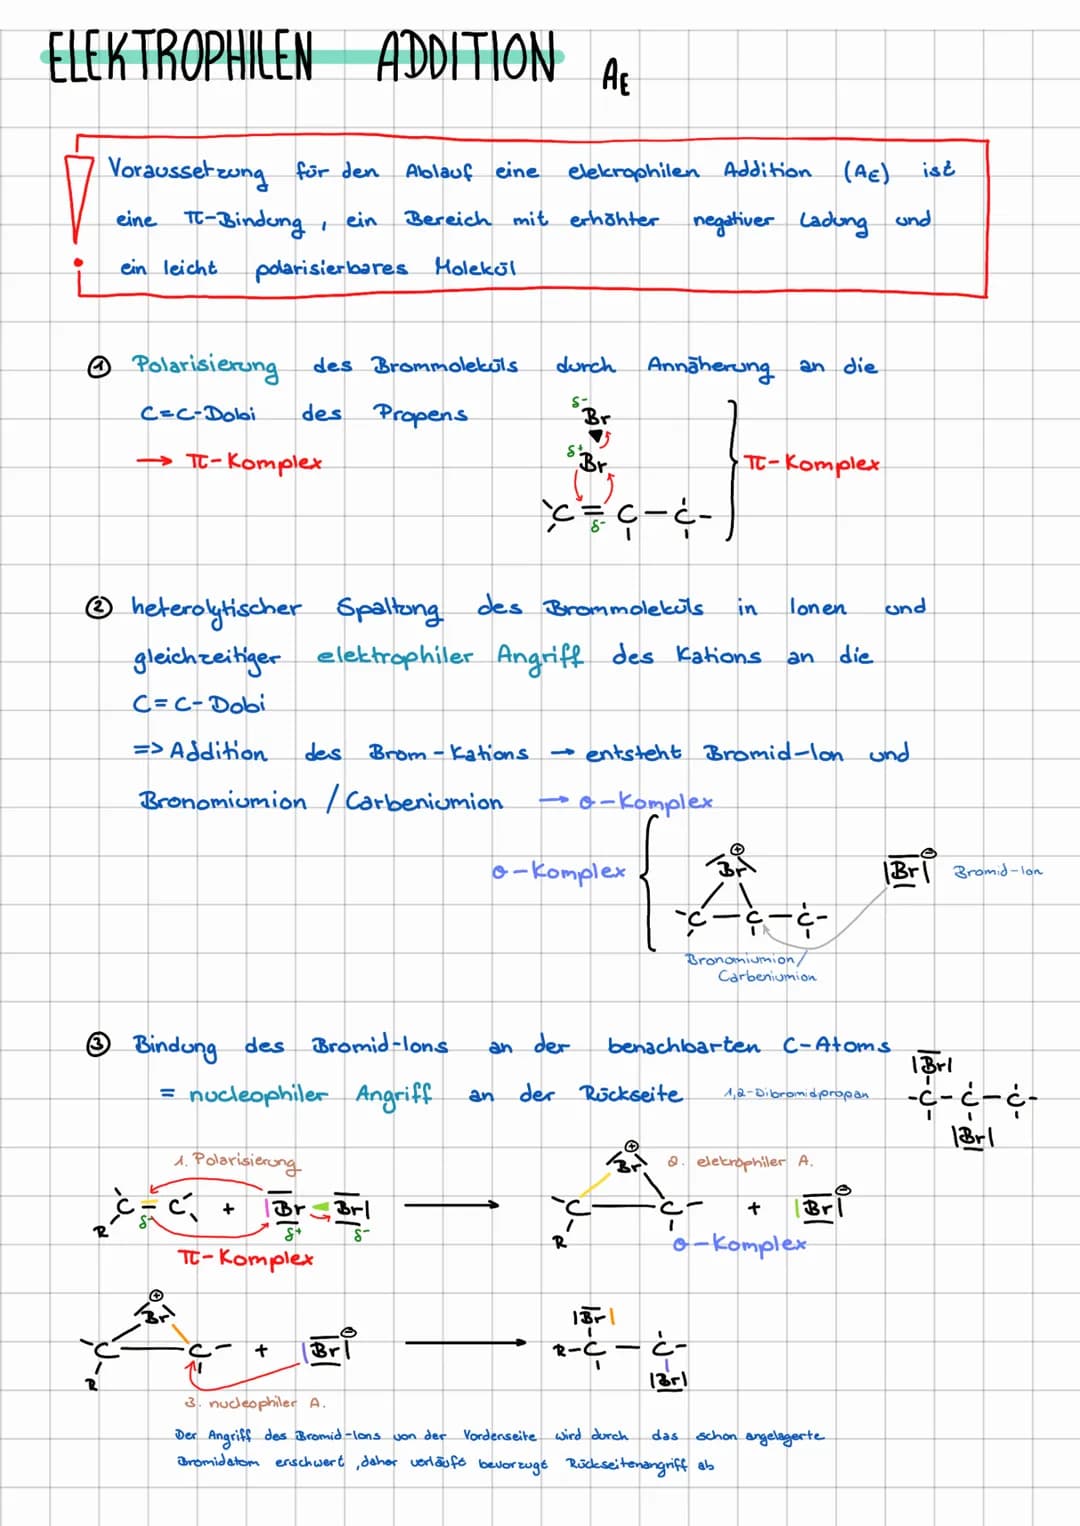 ELEKTROPHILEN ADDITION AE
Voraussetzung für den Ablauf eine elekrophilen Addition (AE) ist
eine π-Bindung, ein Bereich mit erhöhter negativer Ladung und
ein leicht polarisierbares Molekül
① Polarisierung des Brommoleküls durch Annäherung an die
C=C-Dobi des Propens
→ π-Komplex
δ-
Br
δ+
Br
C=C-C-
δ-
π-Komplex
② heterolytischer Spaltung des Brommoleküls in Ionen und
gleichzeitiger elektrophiler Angriff des Kations an die
C=C-Dobi
=> Addition des Brom-Kations → entsteht Bromid-Ion und
Bronomiumion / Carbeniumion → σ-Komplex
σ-Komplex
⊕
Br
-C-C-C-
|Br| ⊖ Bromid-Ion
Bronomiumion/
Carbeniumion
③ Bindung des Bromid-Ions an der benachbarten C-Atoms
= nucleophiler Angriff an der Rückseite 1,2-Dibromidpropan
|Br|
-C-C-C-
|Br|
1. Polarisierung
C=C + |Br-Br|
R δ- δ+ δ-
π-Komplex
⊕
Br 2. elekrophiler A.
-C-C- + |Br| ⊖
R
σ-Komplex
⊕
Br
-C-C- + |Br| ⊖
R
3. nucleophiler A.
|Br|
R-C-C-
|Br|
Der Angriff des Bromid-Ions von der Vorderseite wird durch das schon angelagerte
Bromidatom erschwert, daher verläufe bevorzugt Rückseitenangriff ab